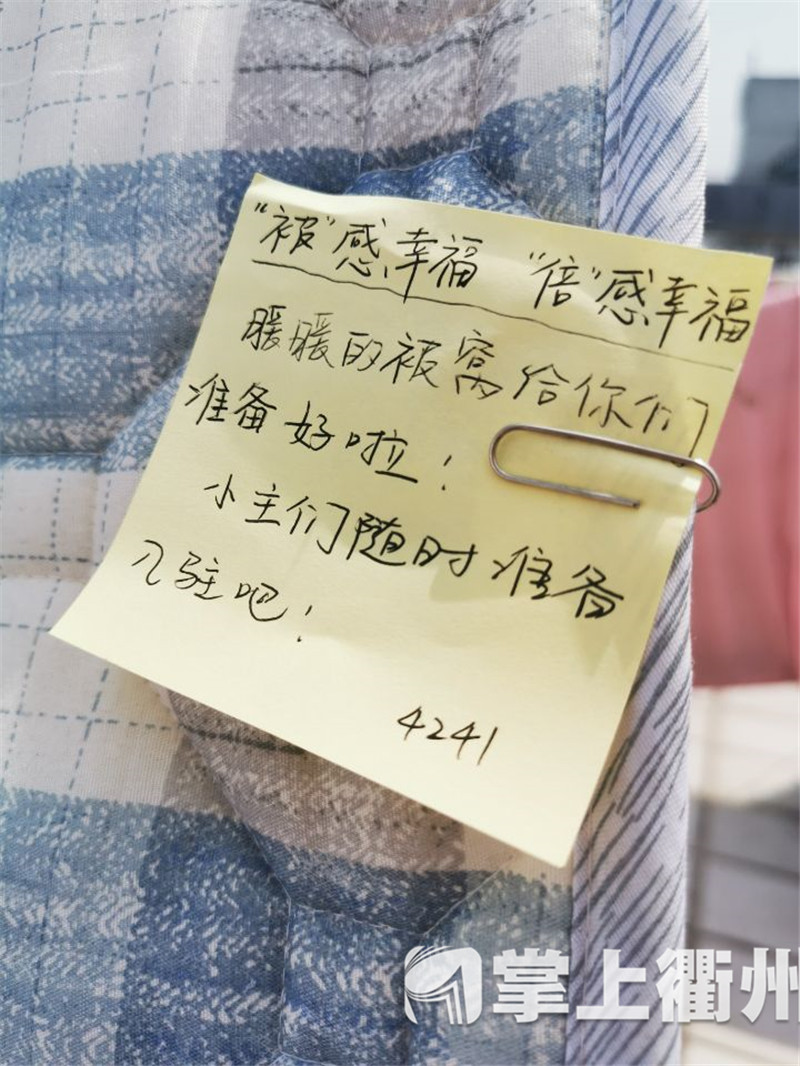 “被”感幸福 “倍”感幸福
暖暖的被窝给你们
准备好啦！
小主们随时准备
入驻吧！
4241
掌上衢州